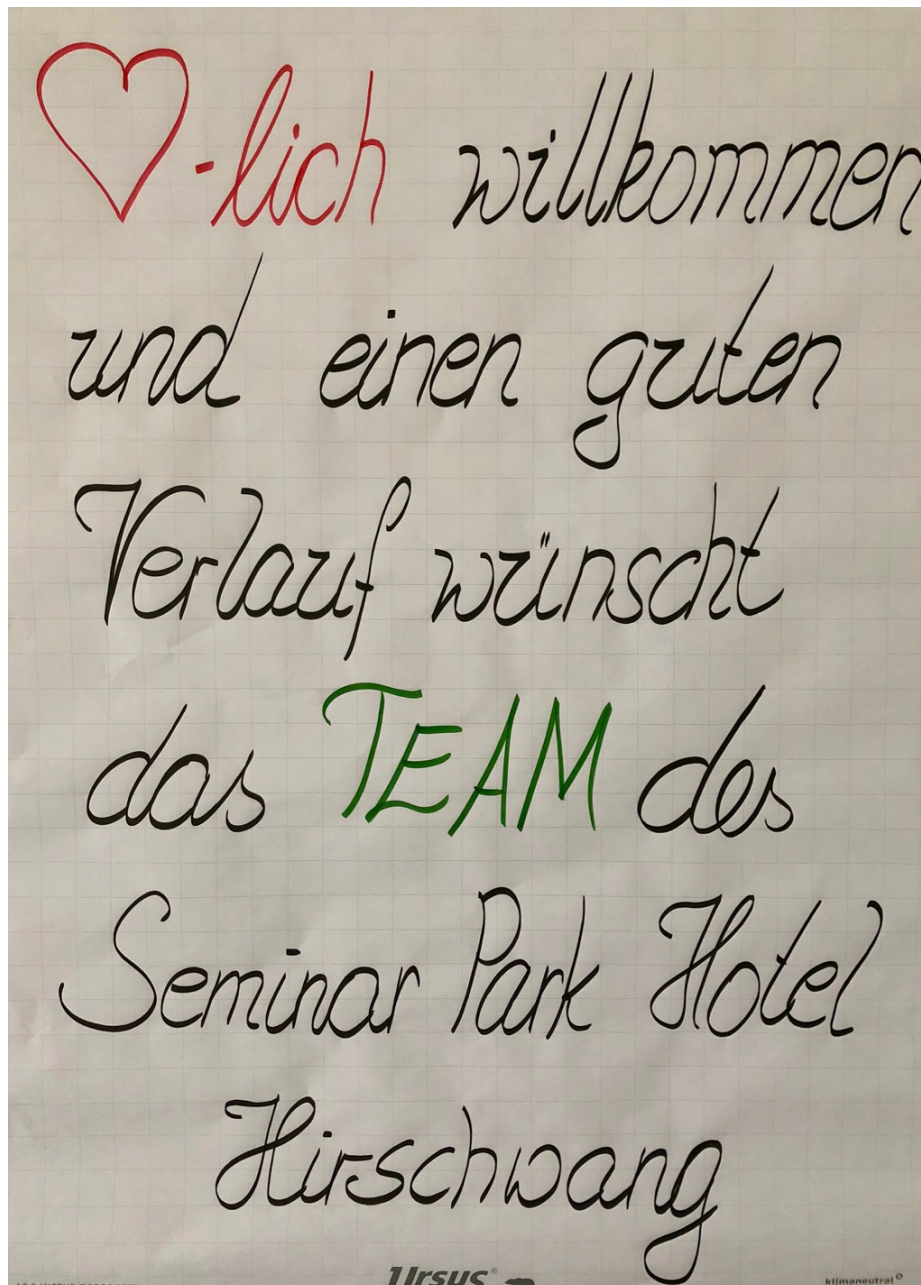 ♡-lich willkommen
und einen guten
Verlauf wünscht
das TEAM des
Seminar Park Hotel
Hirschwang
Ursus®
klimaneutral